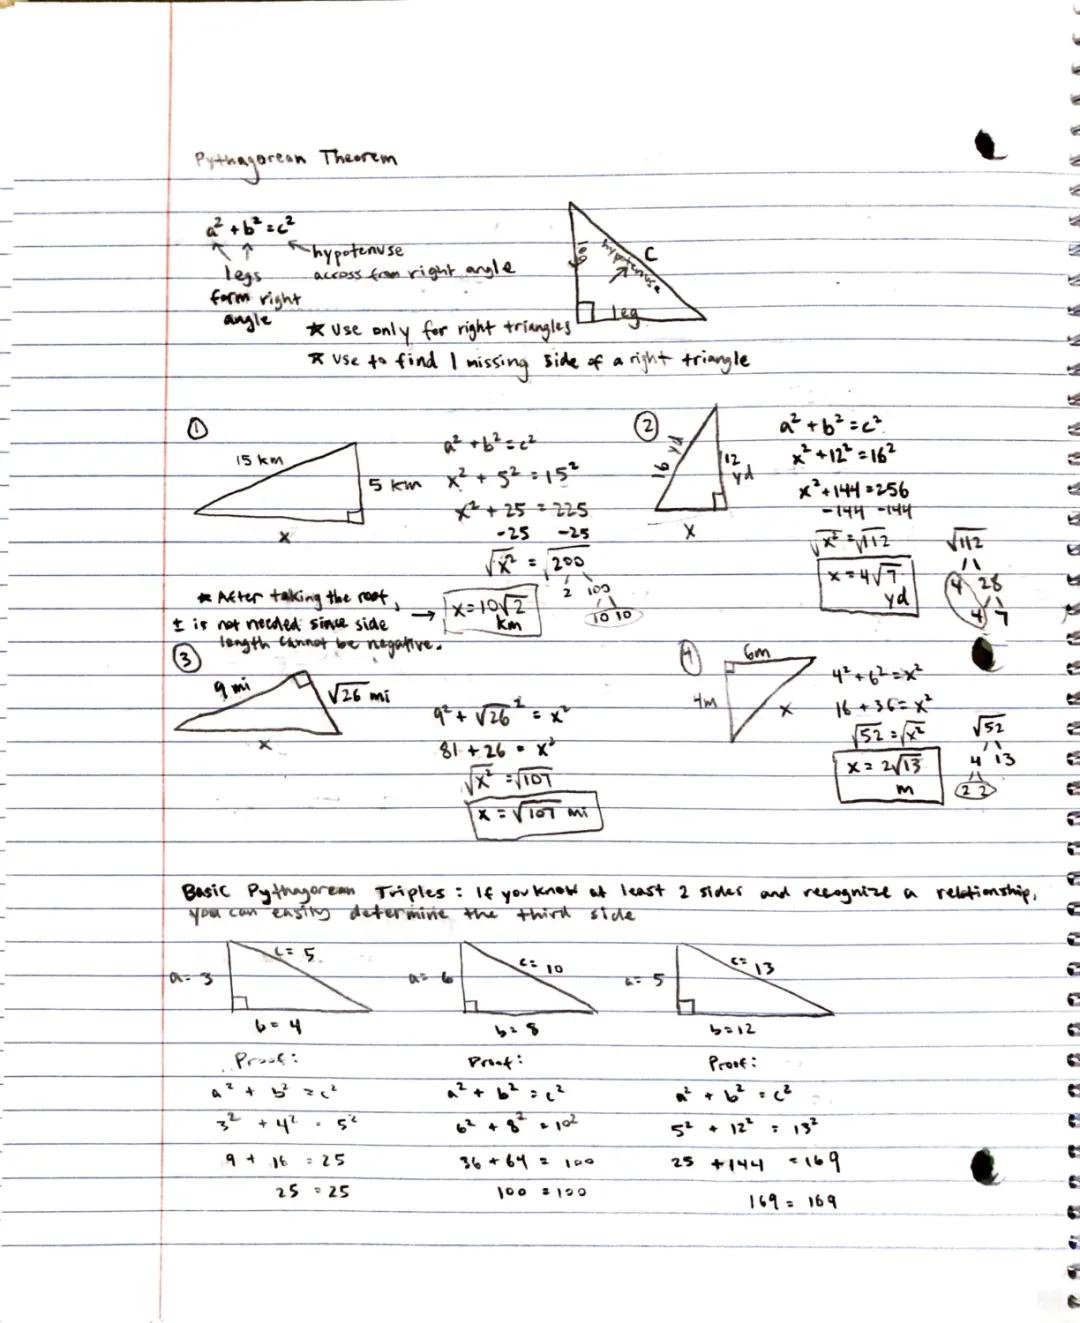 Pythagorean Theorem
a² + b² = c²
hypotenuse
across from right angle
legs
form right
angle
leg
hypotenuse
C
leg
* Use only for right triangles
* Use to find 1 missing side of a right triangle
①
15 km
5 km
x
a² + b² = c²
x² + 5² = 15²
x² + 25 = 225
-25 -25
√x² = √200
2 100
10 10
x = 10√2
km
* After taking the root,
± is not needed since side
length cannot be negative.
②
16 yd
12
yd
x
a² + b² = c²
x² + 12² = 16²
x² + 144 = 256
-144 -144
√x² = √112
x = 4√7
yd
√112
4 28
4 7
③
9 mi
√26 mi
x
9² + √26² = x²
81 + 26 = x²
√x² = √107
x = √107 mi
④
6m
4m
x
4² + 6² = x²
16 + 36 = x²
√52 = √x²
x = 2√13
m
√52
4 13
2 2
Basic Pythagorean Triples: If you know at least 2 sides and recognize a relationship,
you can easily determine the third side
a = 3
c = 5
b = 4
Proof:
a² + b² = c²
3² + 4² = 5²
9 + 16 = 25
25 = 25
a = 6
c = 10
b = 8
Proof:
a² + b² = c²
6² + 8² = 10²
36 + 64 = 100
100 = 100
a = 5
c = 13
b = 12
Proof:
a² + b² = c²
5² + 12² = 13²
25 + 144 = 169
169 = 169